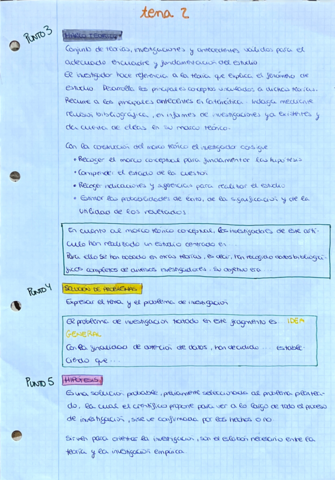 tema 2
PUNTO 3
MARCO TEÓRICO
Conjunto de teorías, investigaciones y antecedentes válidos para el
adecuado encuadre y fundamentación del estudio.
El investigador hace referencia a la teoría que explica el fenómeno de
estudio. Desarrolla los principales conceptos vinculados a dicha teoría.
Recurre a los principales antecedentes
revisión bibliográfica, en informes de investigaciones ya existentes y
da cuenta de ellos en su marco teórico.
Con la construcción del marco teórico el investigador consigue
• Recoger el marco conceptual para fundamentar las hipótesis
• Comprender el estado de la cuestión
• Recoge indicaciones y sugerencias para realizar el estudio
• Estimar las probabilidades de éxito, de la significación y de la
utilidad de los resultados
En cuanto al marco teórico conceptual, los investigadores de este artí-
culo han realizado un estudio centrado en
Para ello se han basado en otras teorías, es decir, han recogido notas bibliográ-
ficas completas de diversos investigadores. Su objetivo era
PUNTO 4
SELECCIÓN DE PROBLEMAS
Expresar el tema y el problema de investigación
El problema de investigación tratado en este fragmento es IDEA
GENERAL
Con la finalidad de obtención de datos, han decidido ... estable-
ciendo que ...
PUNTO 5
HIPÓTESIS
Es una solución probable, previamente seleccionada al problema plantea-
do, la cual el científico propone para ver a lo largo de todo el proceso
de investigación, si se ve confirmada por los hechos o no
Sirven para orientar la investigación, son el eslabón necesario entre la
teoría y la investigación empírica